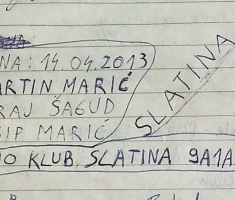 NA: 14.04.2013
ARTIN MARIĆ
RAJ ŠAGUD
SIP MARIĆ
SLATINA
IO KLUB SLATINA 9A1A